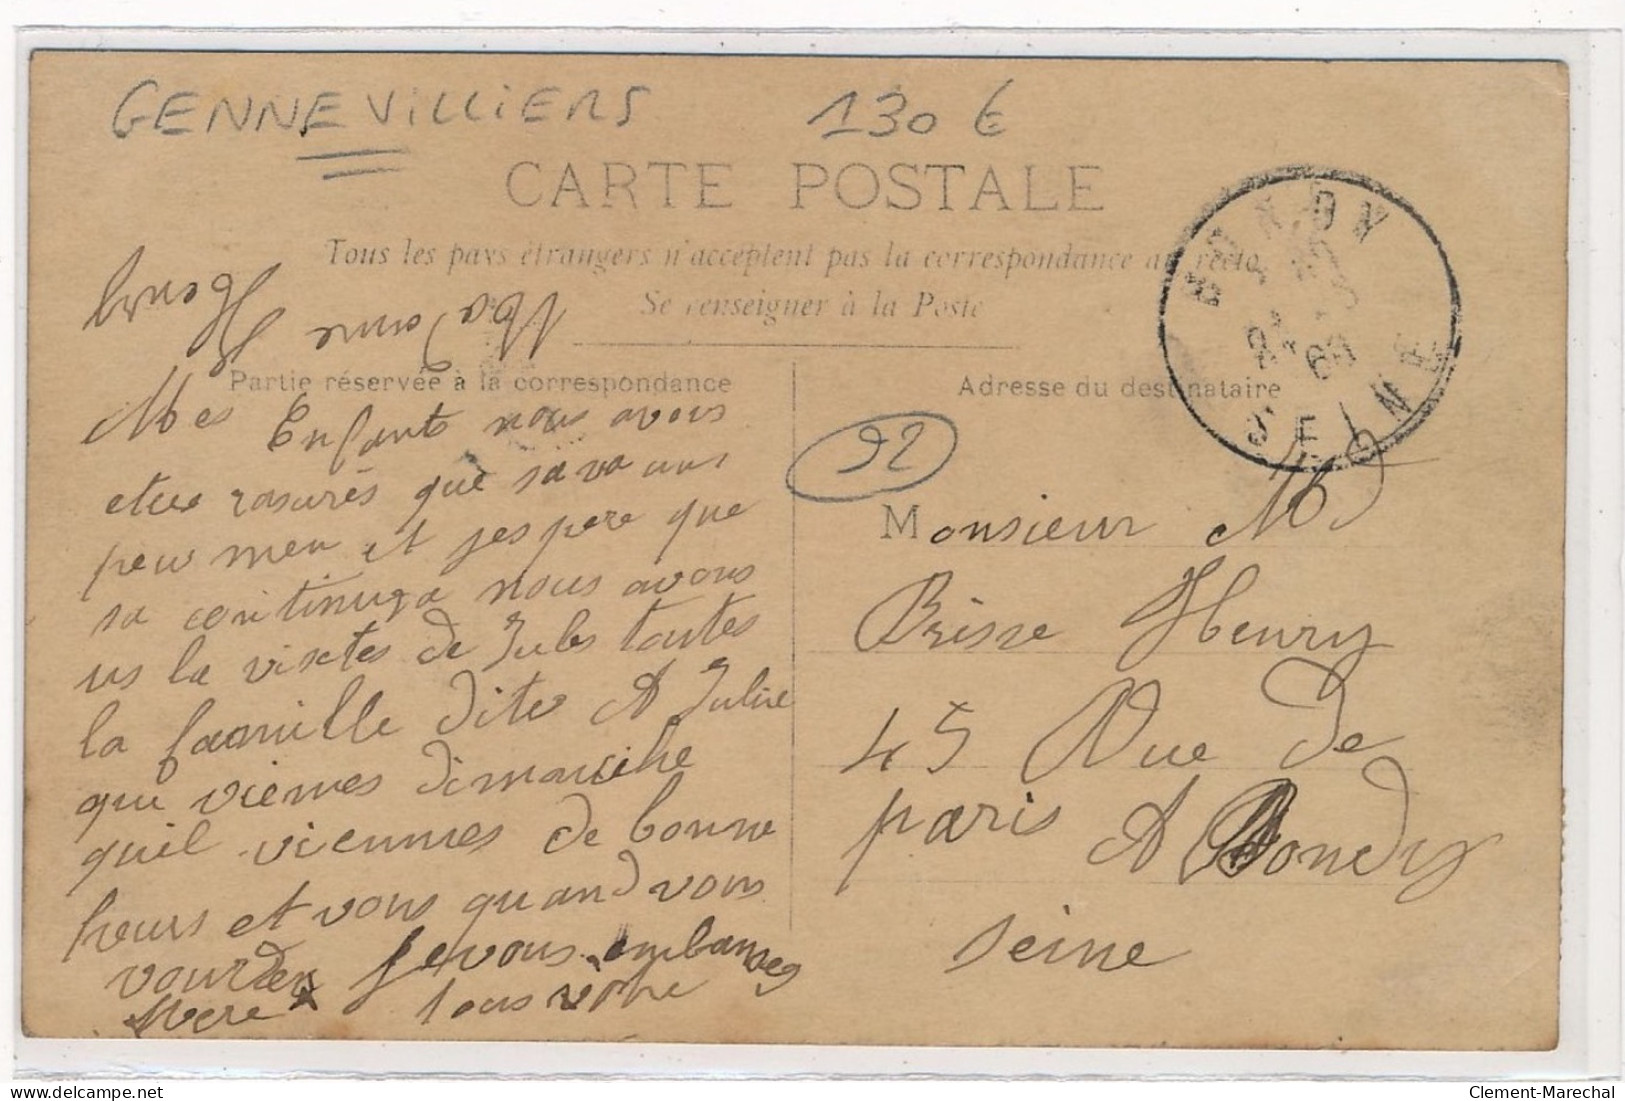 GENNEVILLIERS 130 €
CARTE POSTALE
Tous les pays étrangers n'acceptent pas la correspondance au recto
Se renseigner à la Poste
Partie réservée à la correspondance
Mes Enfants nous avons
etue rasurés que sa va uns
peu meu et jespere que
sa continuza nous avons
us la visites de Jules toutes
la famille dite A Juline
qui viennes dimanche
quil viennes de bonne
heurs et vous quand vous
vourdez Je vous embansses
tous votre
Mere
Adresse du destinataire
92
Monsieur M
Brisse Henry
45 Rue de
paris A Bondy
seine
SEINE
delcampe.net
Clement-Marechal